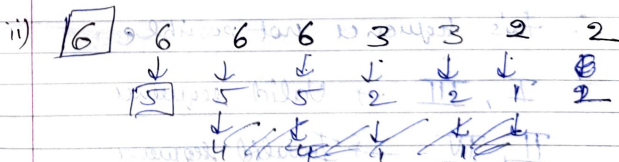 ii) 6 6 6 6 3 3 2 2
↓ ↓ ↓ ↓ ↓ ↓
5 5 5 2 2 1 2
↓ ↓ ↓ ↓ ↓
4 4 1